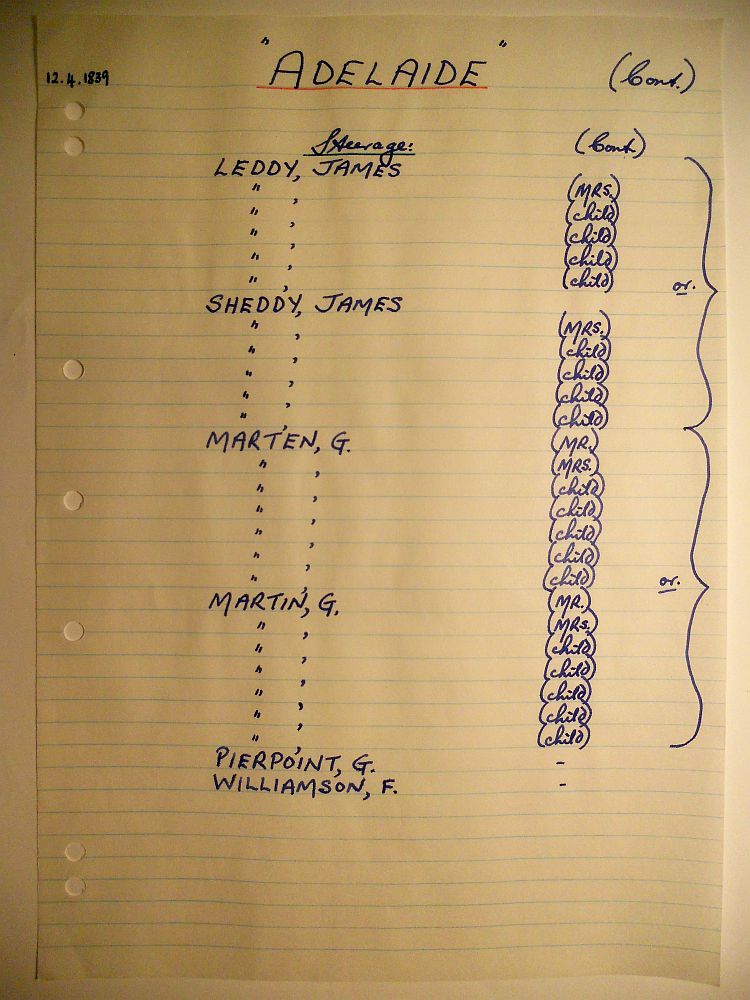 12.4.1839 "ADELAIDE" (Cont.)
Steerage: (Cont)
LEDDY, JAMES
" , (MRS.)
" , (child)
" , (child)
" , (child)
" , (child)
or.
SHEDDY, JAMES
" , (MRS.)
" , (child)
" , (child)
" , (child)
" , (child)
MARTEN, G. (MR.)
" , (MRS.)
" , (child)
" , (child)
" , (child)
" , (child)
" , (child)
or.
MARTIN, G. (MR.)
" , (MRS.)
" , (child)
" , (child)
" , (child)
" , (child)
" , (child)
PIERPOINT, G. -
WILLIAMSON, F. -